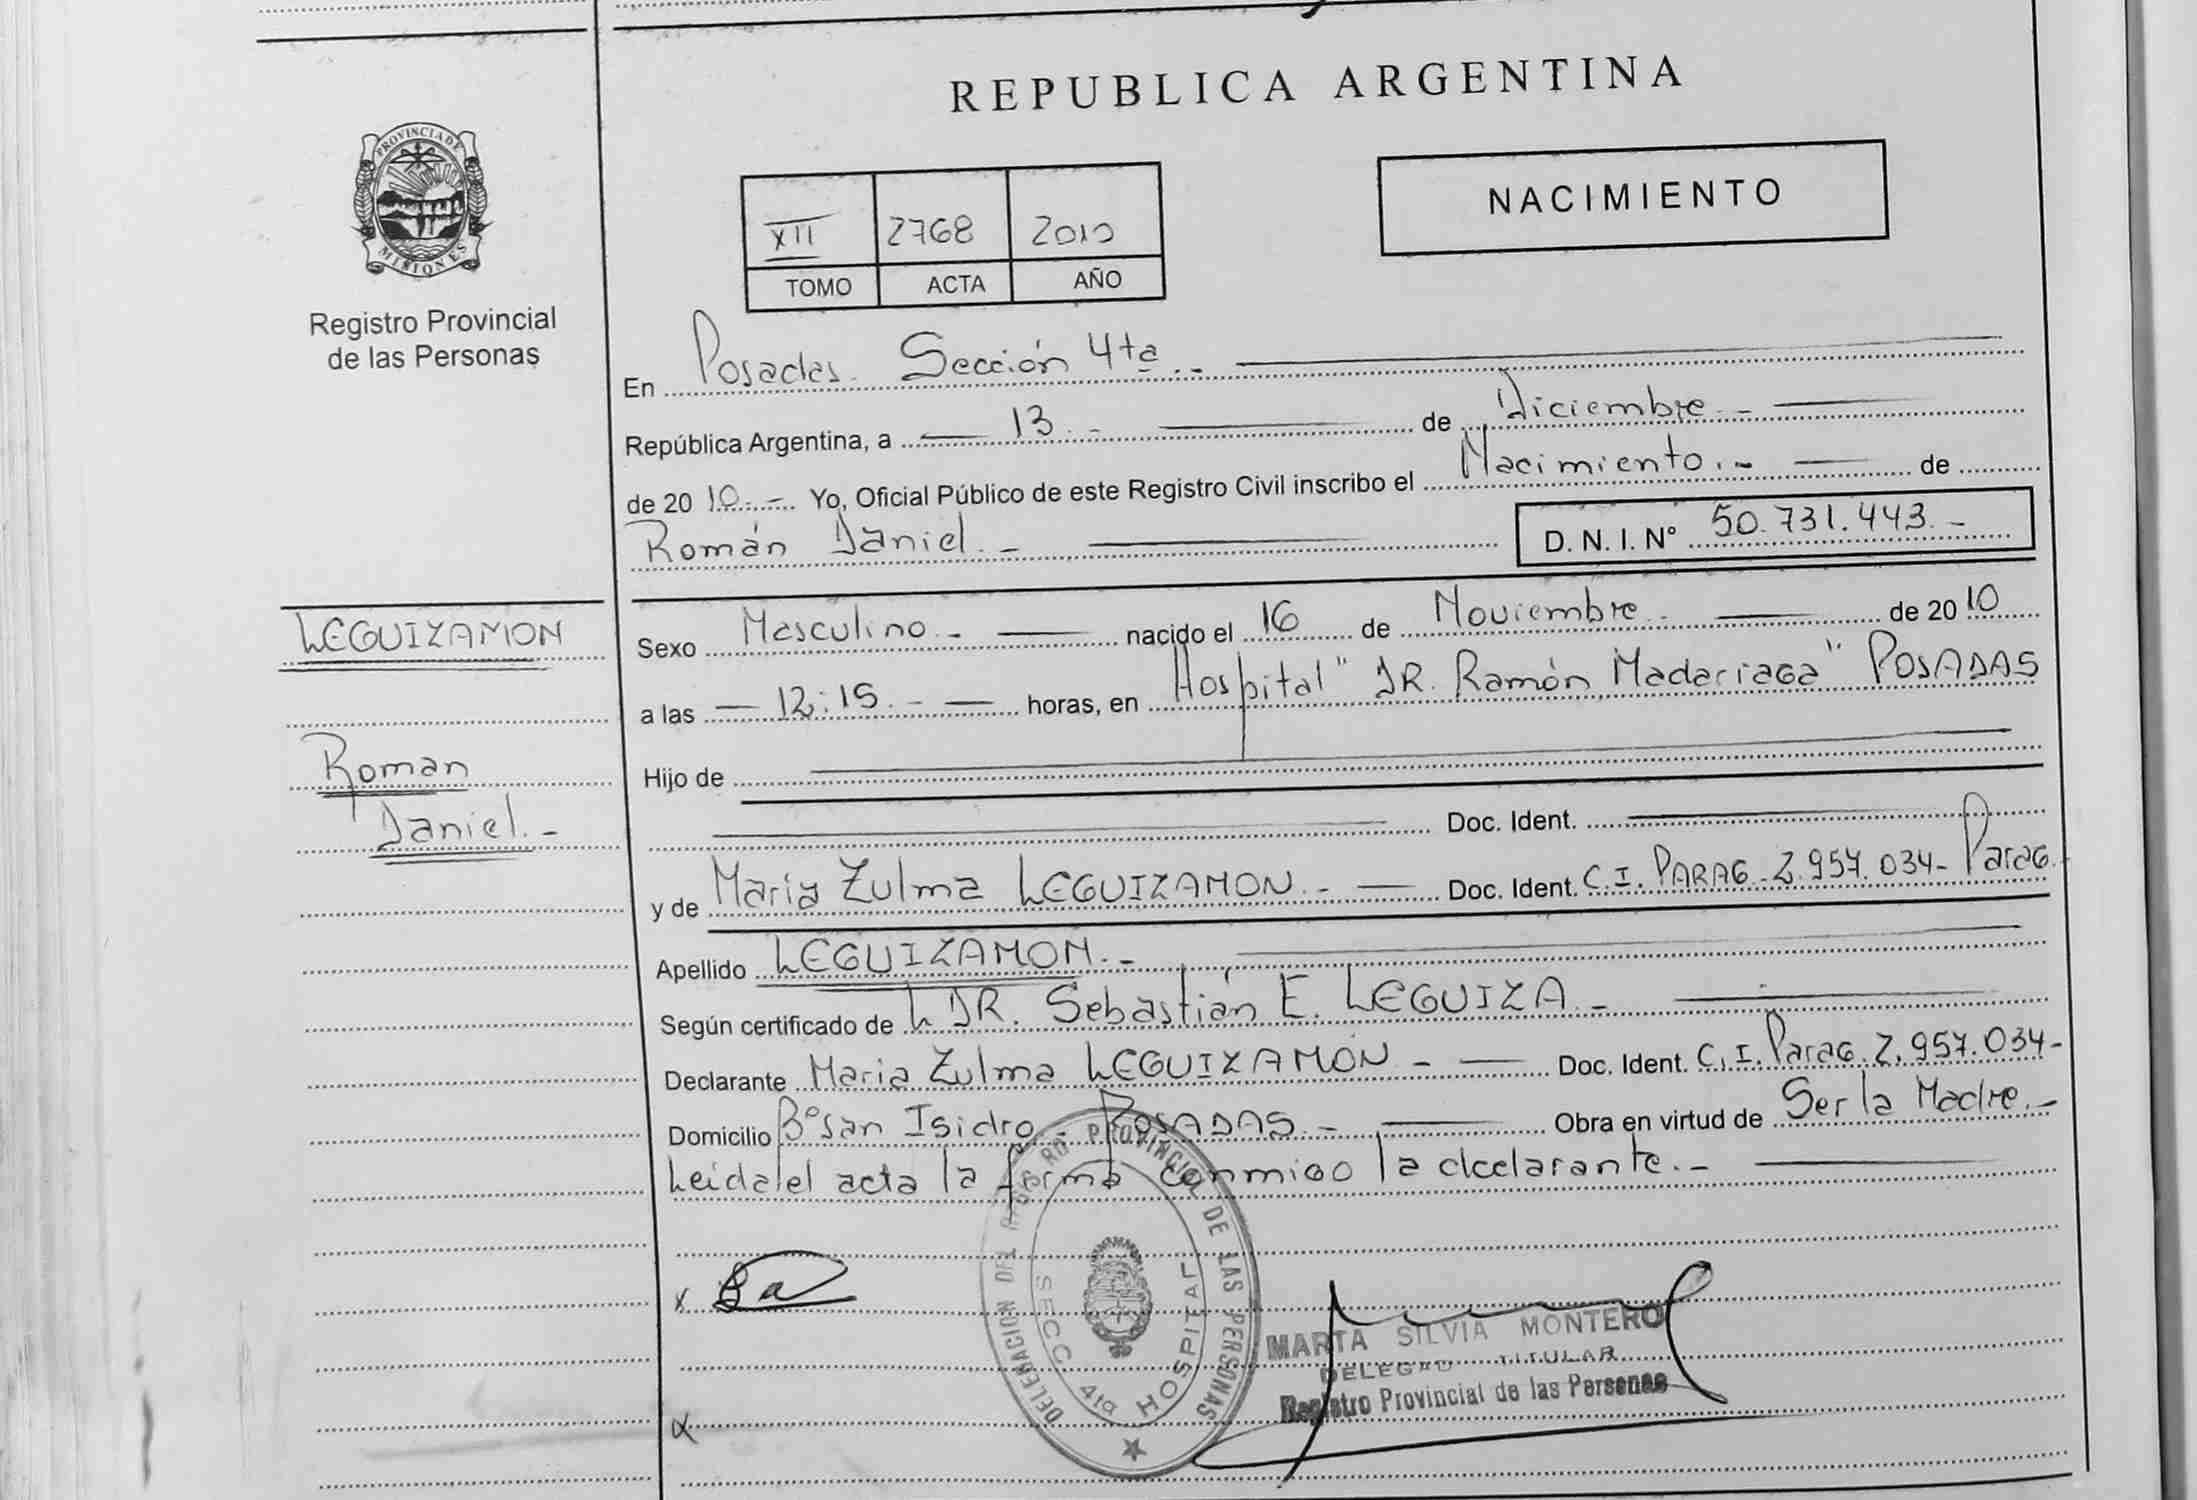 REPUBLICA ARGENTINA
PROVINCIA DE
MISIONES
Registro Provincial
de las Personas
NACIMIENTO
XII 2768 2010
TOMO ACTA AÑO
En Posadas. Sección 4ta.-
República Argentina, a 13.- de Diciembre.-
de 2010.- Yo, Oficial Público de este Registro Civil inscribo el Nacimiento.- de
Román Daniel.- D. N. I. Nº 50.731.443.-
LEGUIZAMON
Román
Daniel.-
Sexo Masculino.- nacido el 16 de Noviembre.- de 2010
a las 12:15.- horas, en Hospital "DR. Ramón Madariaga" POSADAS
Hijo de
Doc. Ident.
y de María Zulma LEGUIZAMON.- Doc. Ident. C.I. PARAG. 2.957.034- Parag.
Apellido LEGUIZAMON.-
Según certificado de DR. Sebastián E. LEGUIZA.-
Declarante María Zulma LEGUIZAMON.- Doc. Ident. C.I. Parag. 2.957.034-
Domicilio Bº San Isidro - POSADAS.- Obra en virtud de Ser la Madre.-
Leida el acta la firma conmigo la declarante.-
DELEGACION DEL REGISTRO PROVINCIAL DE LAS PERSONAS
SECC 4ta HOSPITAL
MARTA SILVIA MONTERO
DELEGADO TITULAR
Registro Provincial de las Personas